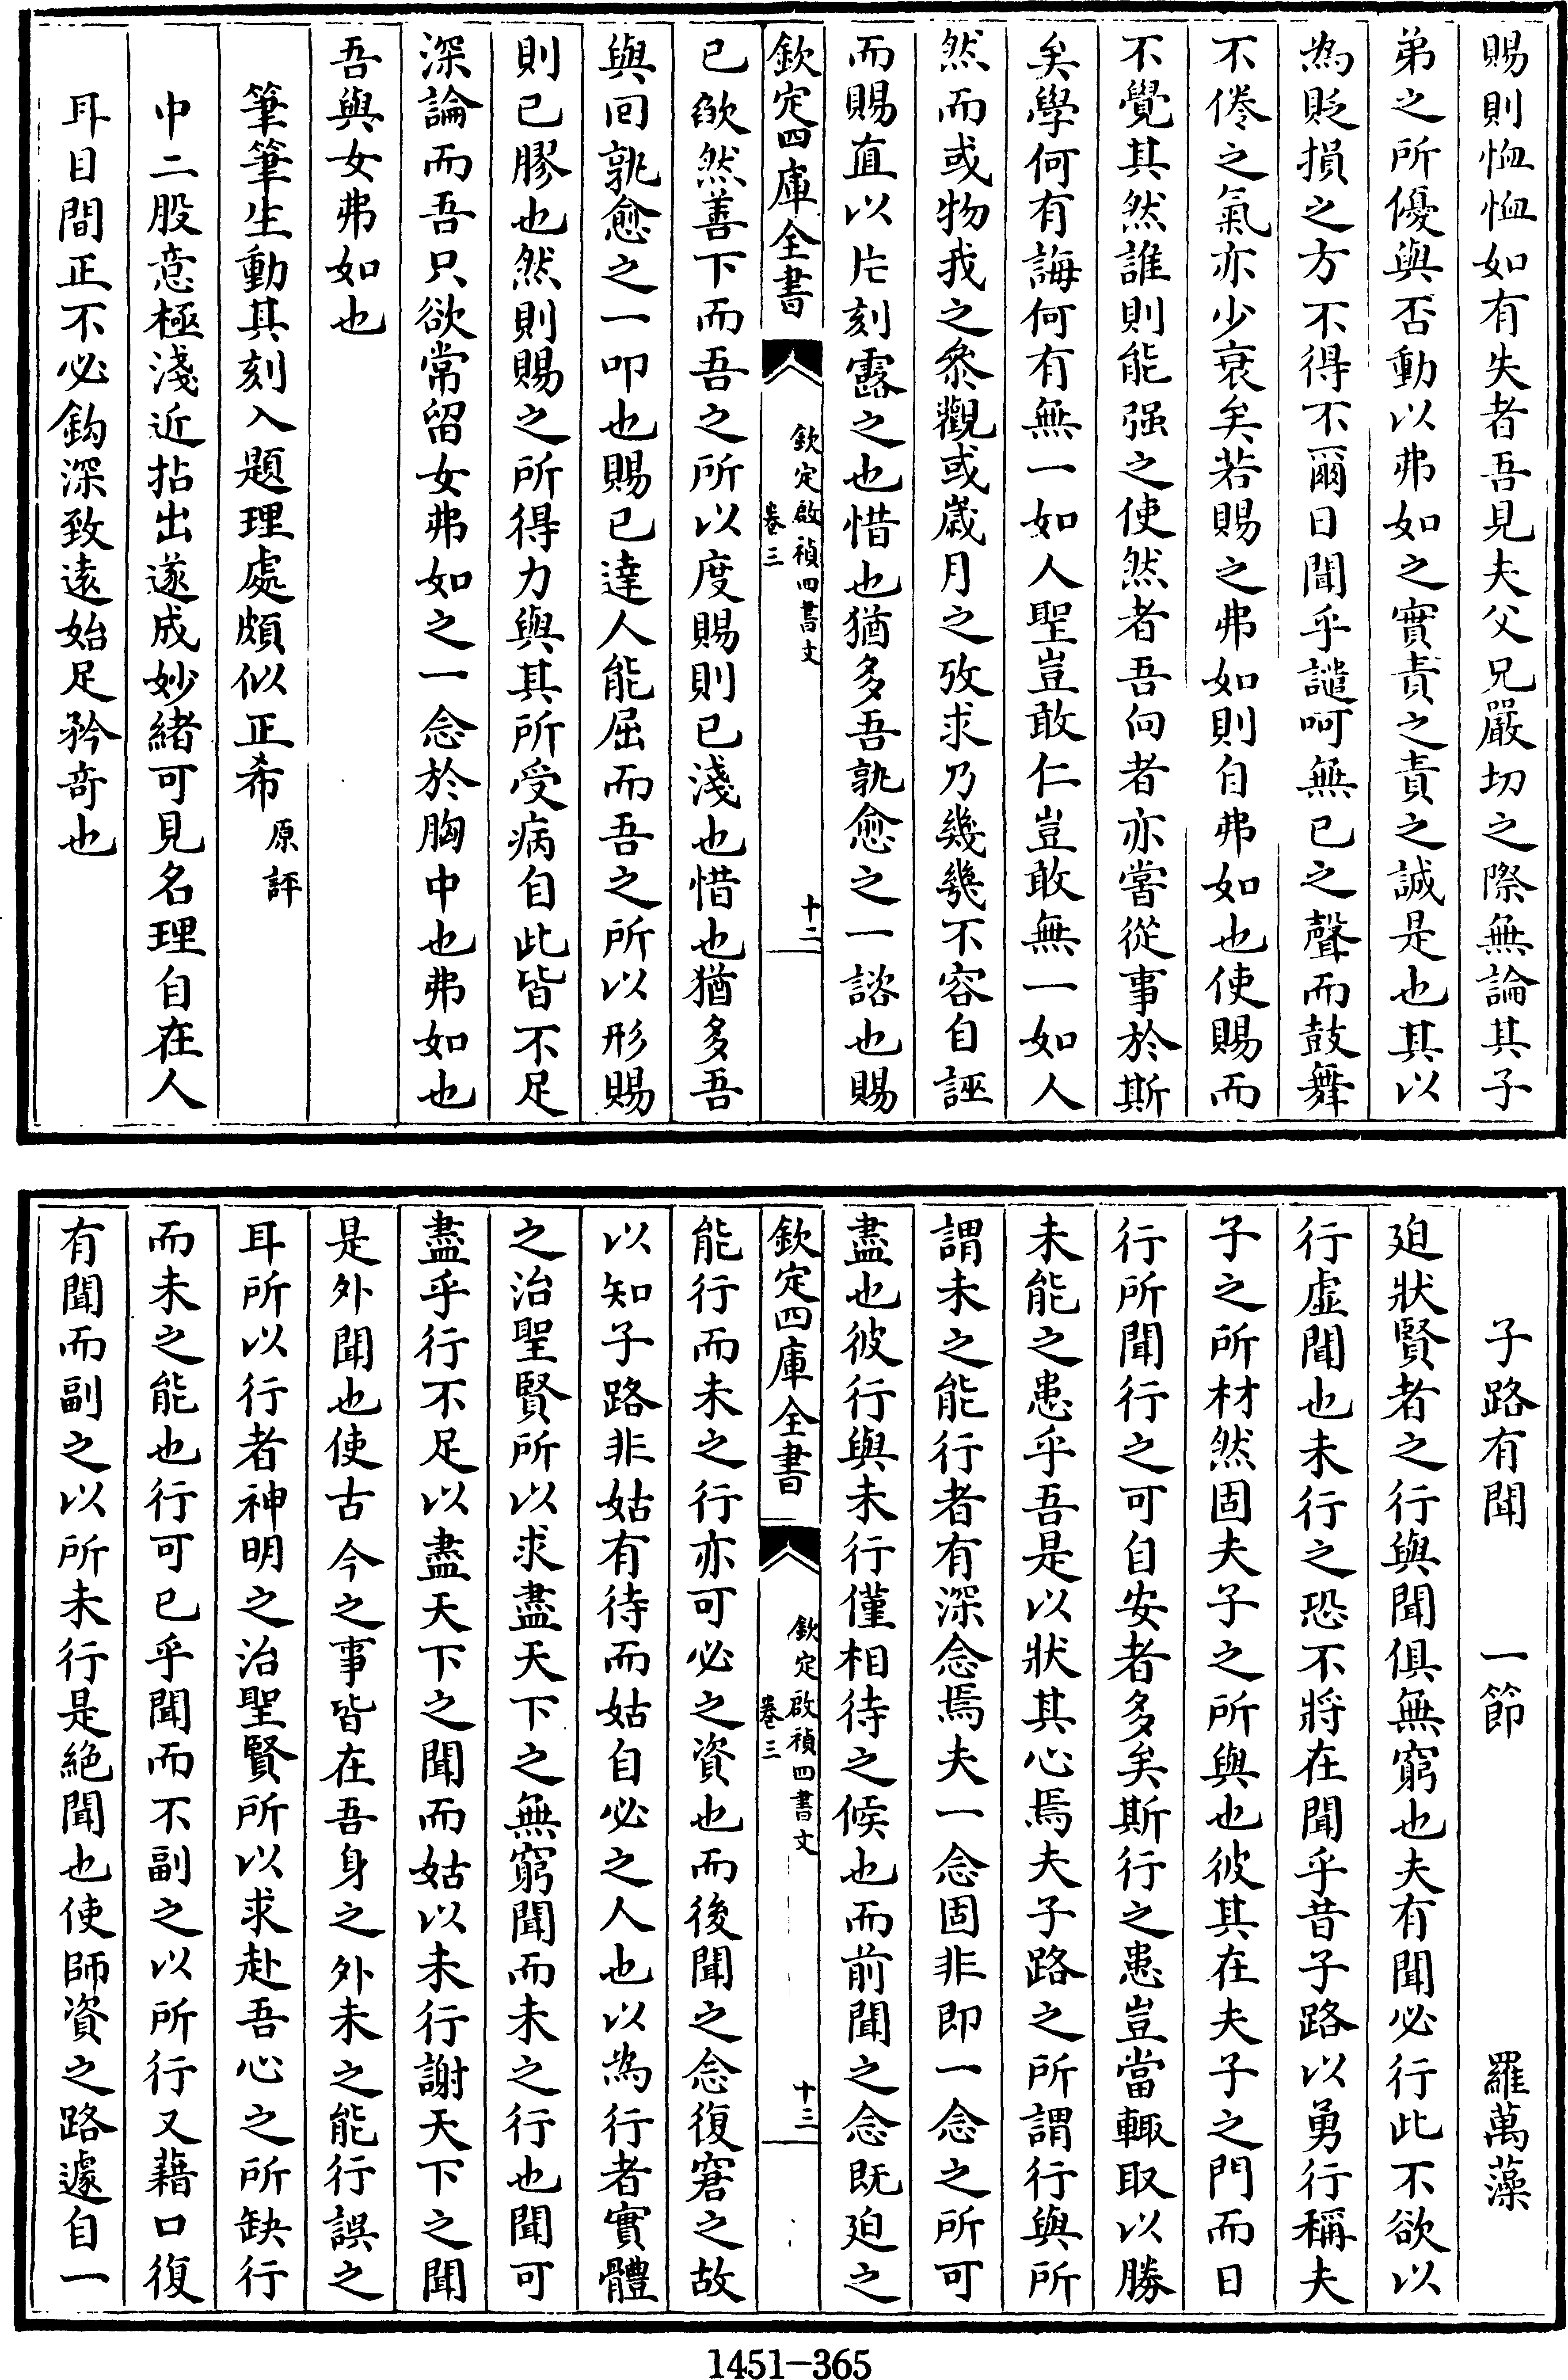 賜則恤恤如有失者吾見夫父兄嚴切之際無論其子
弟之所優與否動以弗如之實責之責之誠是也其以
為貶損之方不得不爾日聞乎譴呵無已之聲而鼓舞
不倦之氣亦少衰矣若賜之弗如則自弗如也使賜而
不覺其然誰則能强之使然者吾向者亦嘗從事於斯
矣學何有誨何有無一如人聖豈敢仁豈敢無一如人
然而或物我之叅觀或歲月之攷求乃幾幾不容自誣
而賜直以片刻露之也惜也猶多吾孰愈之一諮也賜
欽定四庫全書
欽定啟禎四書文
卷三
十二
已欿然善下而吾之所以度賜則已淺也惜也猶多吾
與回孰愈之一叩也賜已達人能屈而吾之所以形賜
則已膠也然則賜之所得力與其所受病自此皆不足
深論而吾只欲常留女弗如之一念於胸中也弗如也
吾與女弗如也
筆筆生動其刻入題理處頗似正希原評
中二股意極淺近拈出遂成妙緒可見名理自在人
耳目間正不必鈎深致遠始足矜奇也
子路有聞 一節 羅萬藻
廹狀賢者之行與聞俱無窮也夫有聞必行此不欲以
行虛聞也未行之恐不將在聞乎昔子路以勇行稱夫
子之所材然固夫子之所與也彼其在夫子之門而日
行所聞行之可自安者多矣斯行之患豈當輙取以勝
未能之患乎吾是以狀其心焉夫子路之所謂行與所
謂未之能行者有深念焉夫一念固非即一念之所可
盡也彼行與未行僅相待之候也而前聞之念既廹之
欽定四庫全書
欽定啟禎四書文
卷三
十三
能行而未之行亦可必之資也而後聞之念復窘之故
以知子路非姑有待而姑自必之人也以為行者實體
之治聖賢所以求盡天下之無窮聞而未之行也聞可
盡乎行不足以盡天下之聞而姑以未行謝天下之聞
是外聞也使古今之事皆在吾身之外未之能行誤之
耳所以行者神明之治聖賢所以求赴吾心之所缺行
而未之能也行可已乎聞而不副之以所行又藉口復
有聞而副之以所未行是絶聞也使師資之路遽自一
1451-365